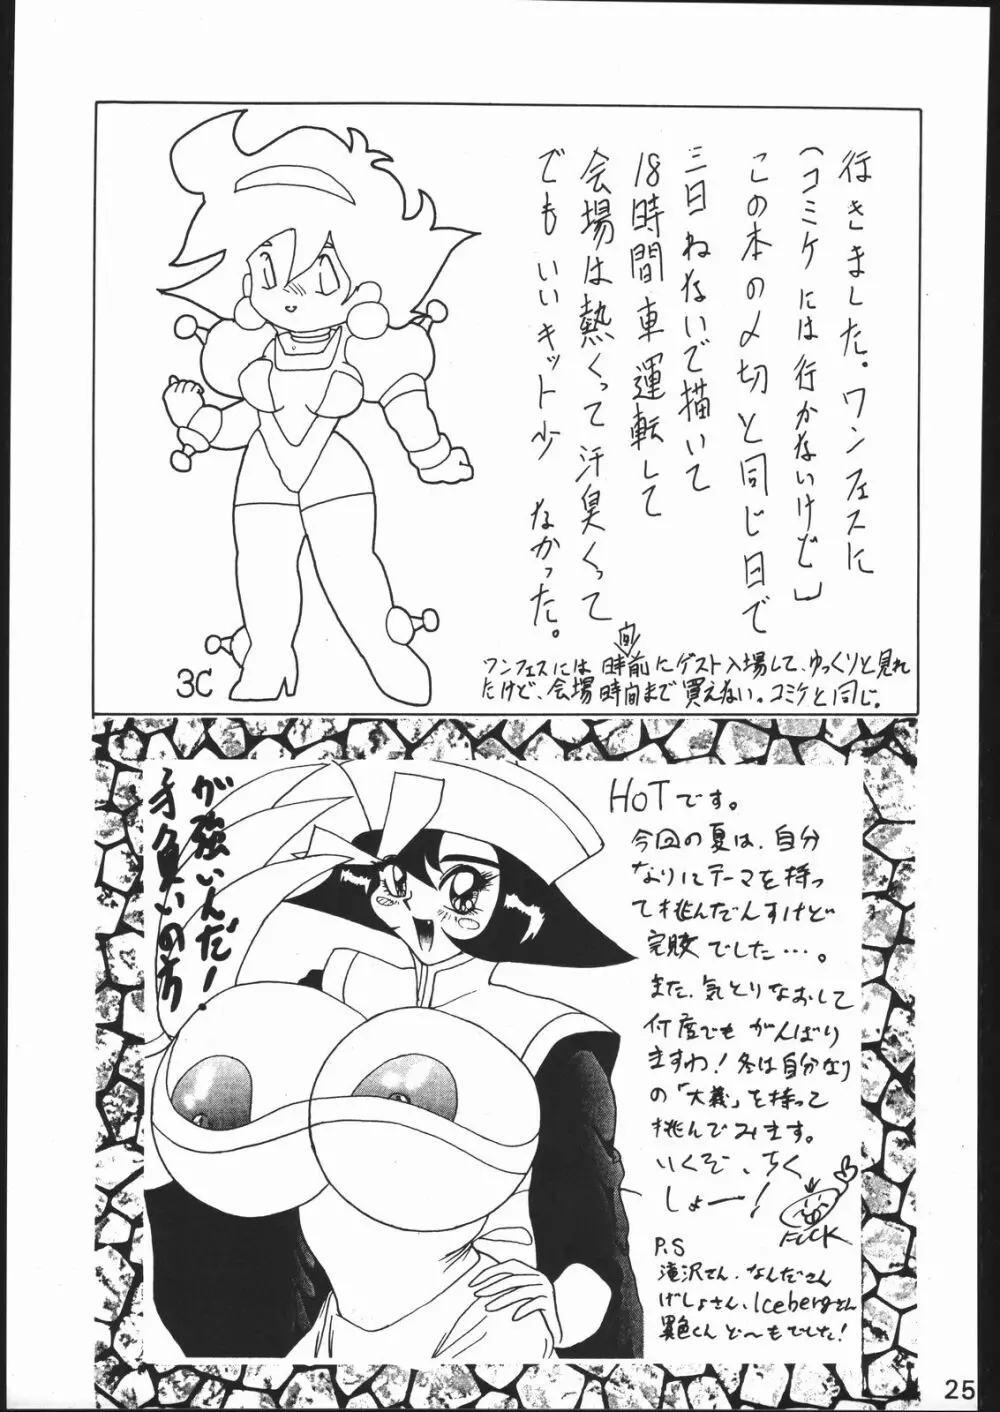 行きました。ワンフェスに
(コミケには行かないけど)
この本の〆切と同じ日で
三日ねないで描いて
18時間車運転して
会場は熱くって汗臭くって
でもいいキット少なかった。
ワンフェスには 時間前にゲスト入場して、ゆっくりと見れ
たけど、会場時間まで買えない。コミケと同じ。
3C
が強いんだ!
才負いの方
HOTです。
今回の夏は、自分
なりにテーマを持っ
て挑んだんすけど
完敗でした…。
また、気とりなおして
何度でもがんばり
ますわ!冬は自分なり
の「大義」を持って
挑んでみます。
いくぞ、ちく
しょー!
FUCK
P.S
滝沢さん、なんださん
げしょさん、Icebergさん
異色くん ど〜もでした!
25